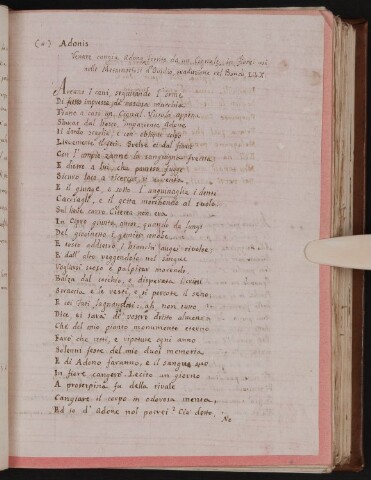 (a) Adonis
Venere cangia Adone ferito da un Cignale in fiore nel
delle Metamorfosi d'Ovidio, traduzione del Bondi, Lib. X.
Allora i cani, seguitando l'orme
Di fiato impresse
Trovano a caso un Cignal.
Sbucar dal bosco, impaziente Adone
il dardo scaglia, e con obliquo colpo
Lievemente il ferì. Svelse ei dal fianco
Con l'ampia zanna la sanguigna freccia
E dietro a lui che pauroso fugge
Sicuro loco a ricercar, si avventa
E il giunge, e sotto l'anguinaglia i denti
Cacciagli, e il getta moribondo al suolo
Sul lieve carro Citerea non era
In Cipro giunta ancor, quando da lungi
Del giovinetto i gemiti intende
E tosto addietro i bianchi augei rivolse
E dall'etra veggendolo nel sangue
Vogliarsi steso e palpitar morendo
Balza dal cocchio, e disperata i crini
Straccia, e le vesti, e si percote il seno,
E coi Fati lagnandosi: ah non tutto
Dice ei sarà di vostro dritto almeno
Che del mio pianto monumento eterno
Farò che resti, e ripetute ogni anno
Solenni feste del mio duol memoria
E di Adone faranno, e il sangue
In fiore cangerò. Lecito un giorno
A proserpina fu della rivale
Cangiare il corpo in odorosa menta,
Ed io d'Adone nol potrei? Ciò detto,
Ne